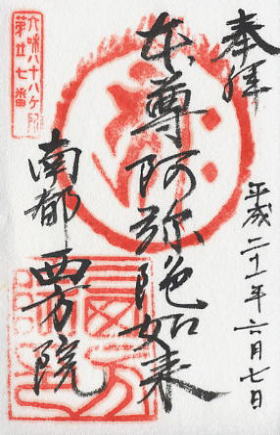 奉拝
平成二十一年六月七日
本尊阿弥陀如来
南都 西方院
八十八ヶ所
第廿七番